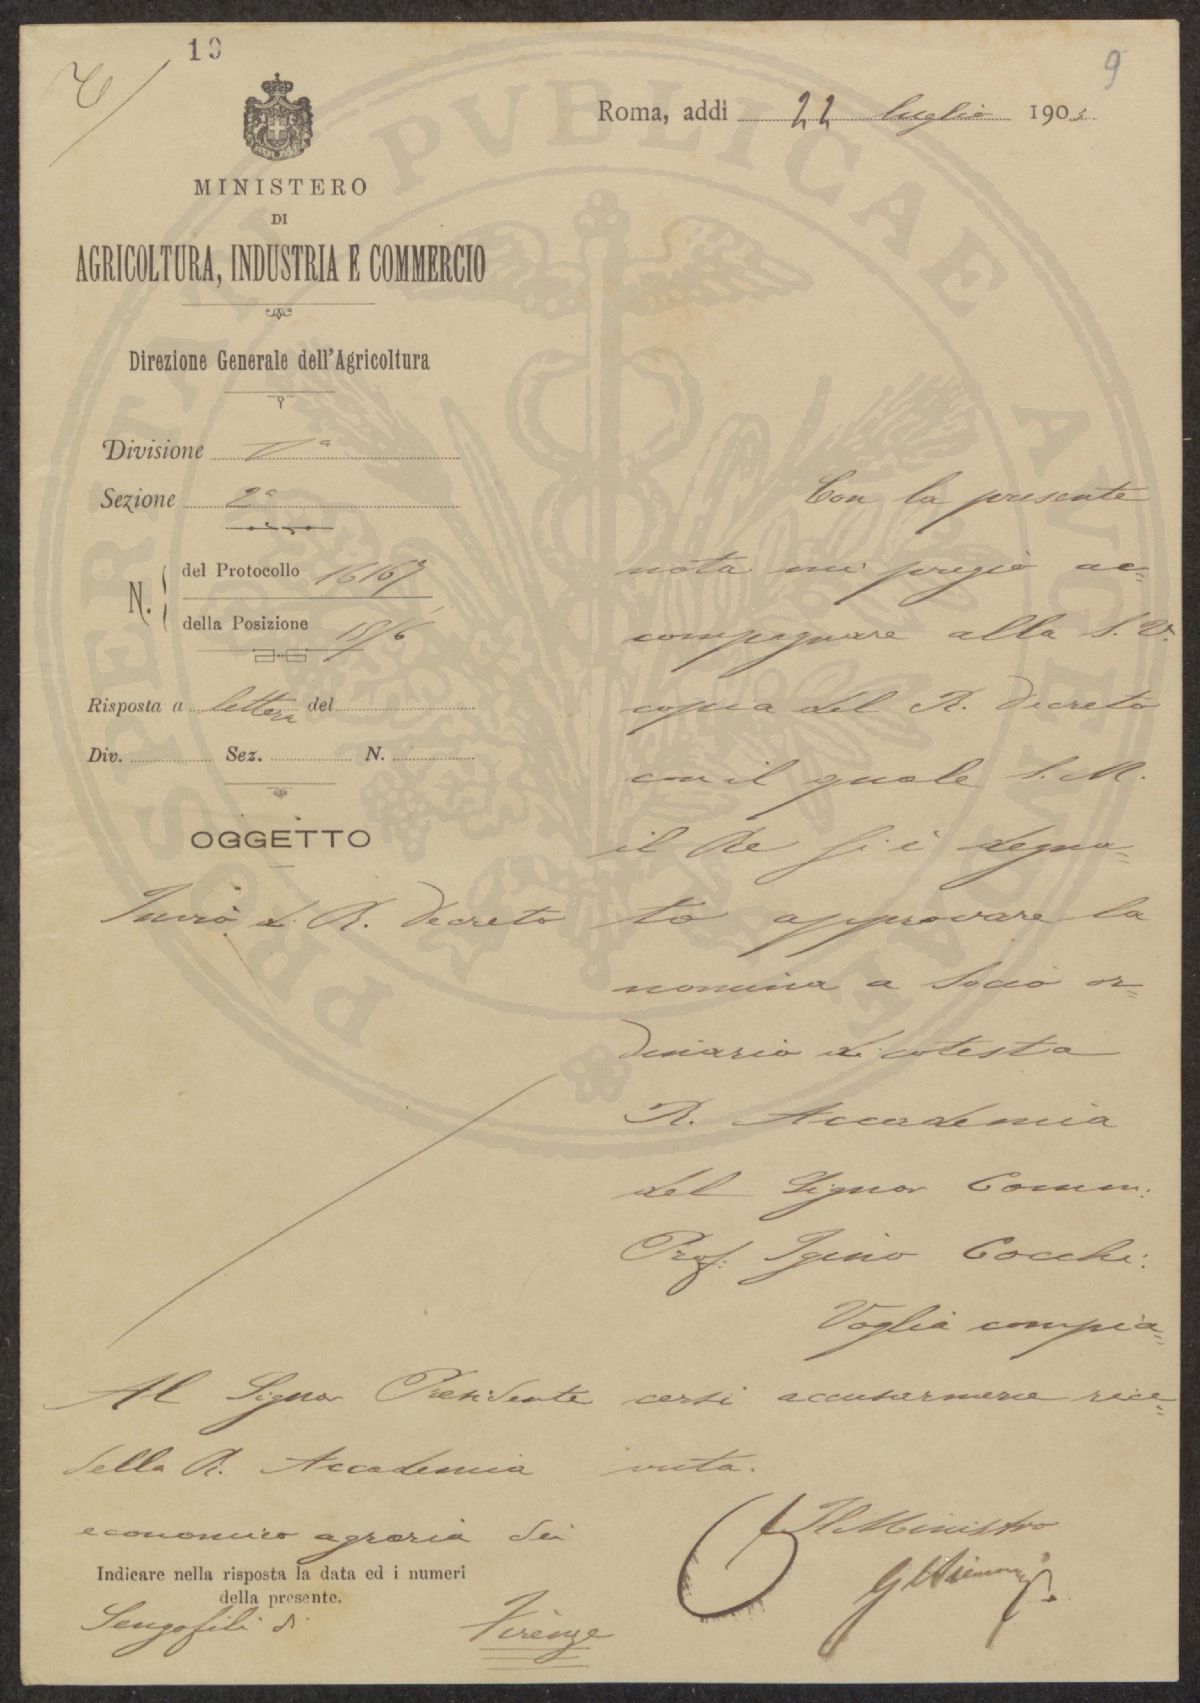 10
9
Roma, addì 22 luglio 1903
MINISTERO
DI
AGRICOLTURA, INDUSTRIA E COMMERCIO
Direzione Generale dell'Agricoltura
Divisione Iª
Sezione 2ª
N. del Protocollo 16167
della Posizione 15/6
Risposta a lettera del
Div. Sez. N.
OGGETTO
Invio di R. Decreto
Con la presente
nota mi pregio ac=
compagnare alla S. V.
copia del R. Decreto
con il quale S. M.
il Re si è degna=
to approvare la
nomina a Socio or=
dinario di cotesta
R. Accademia
del Signor Comm:
Prof: Igino Cocchi:
Voglia compia=
cersi accusarmene rice=
vuta.
Il Ministro
Al Signor Presidente
della R. Accademia
economico agraria dei
Indicare nella risposta la data ed i numeri
della presente.
Gergofili di Firenze
PROSPERITATI PVBLICAE AVGENDAE